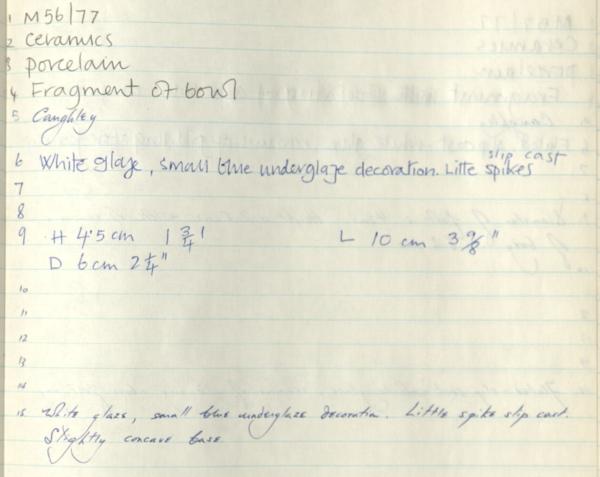 1 M56/77
2 Ceramics
3 porcelain
4 Fragment of bowl
5 Caughley
slip cast
6 White glaze, small blue underglaze decoration. Litte spikes
7
8
9 H 4.5 cm 1 3/4" L 10 cm 3 9/8"
D 6 cm 2 1/4"
10
11
12
13
14
15 White glaze, small blue underglaze decoration. Little spike slip cast.
Slightly concave base